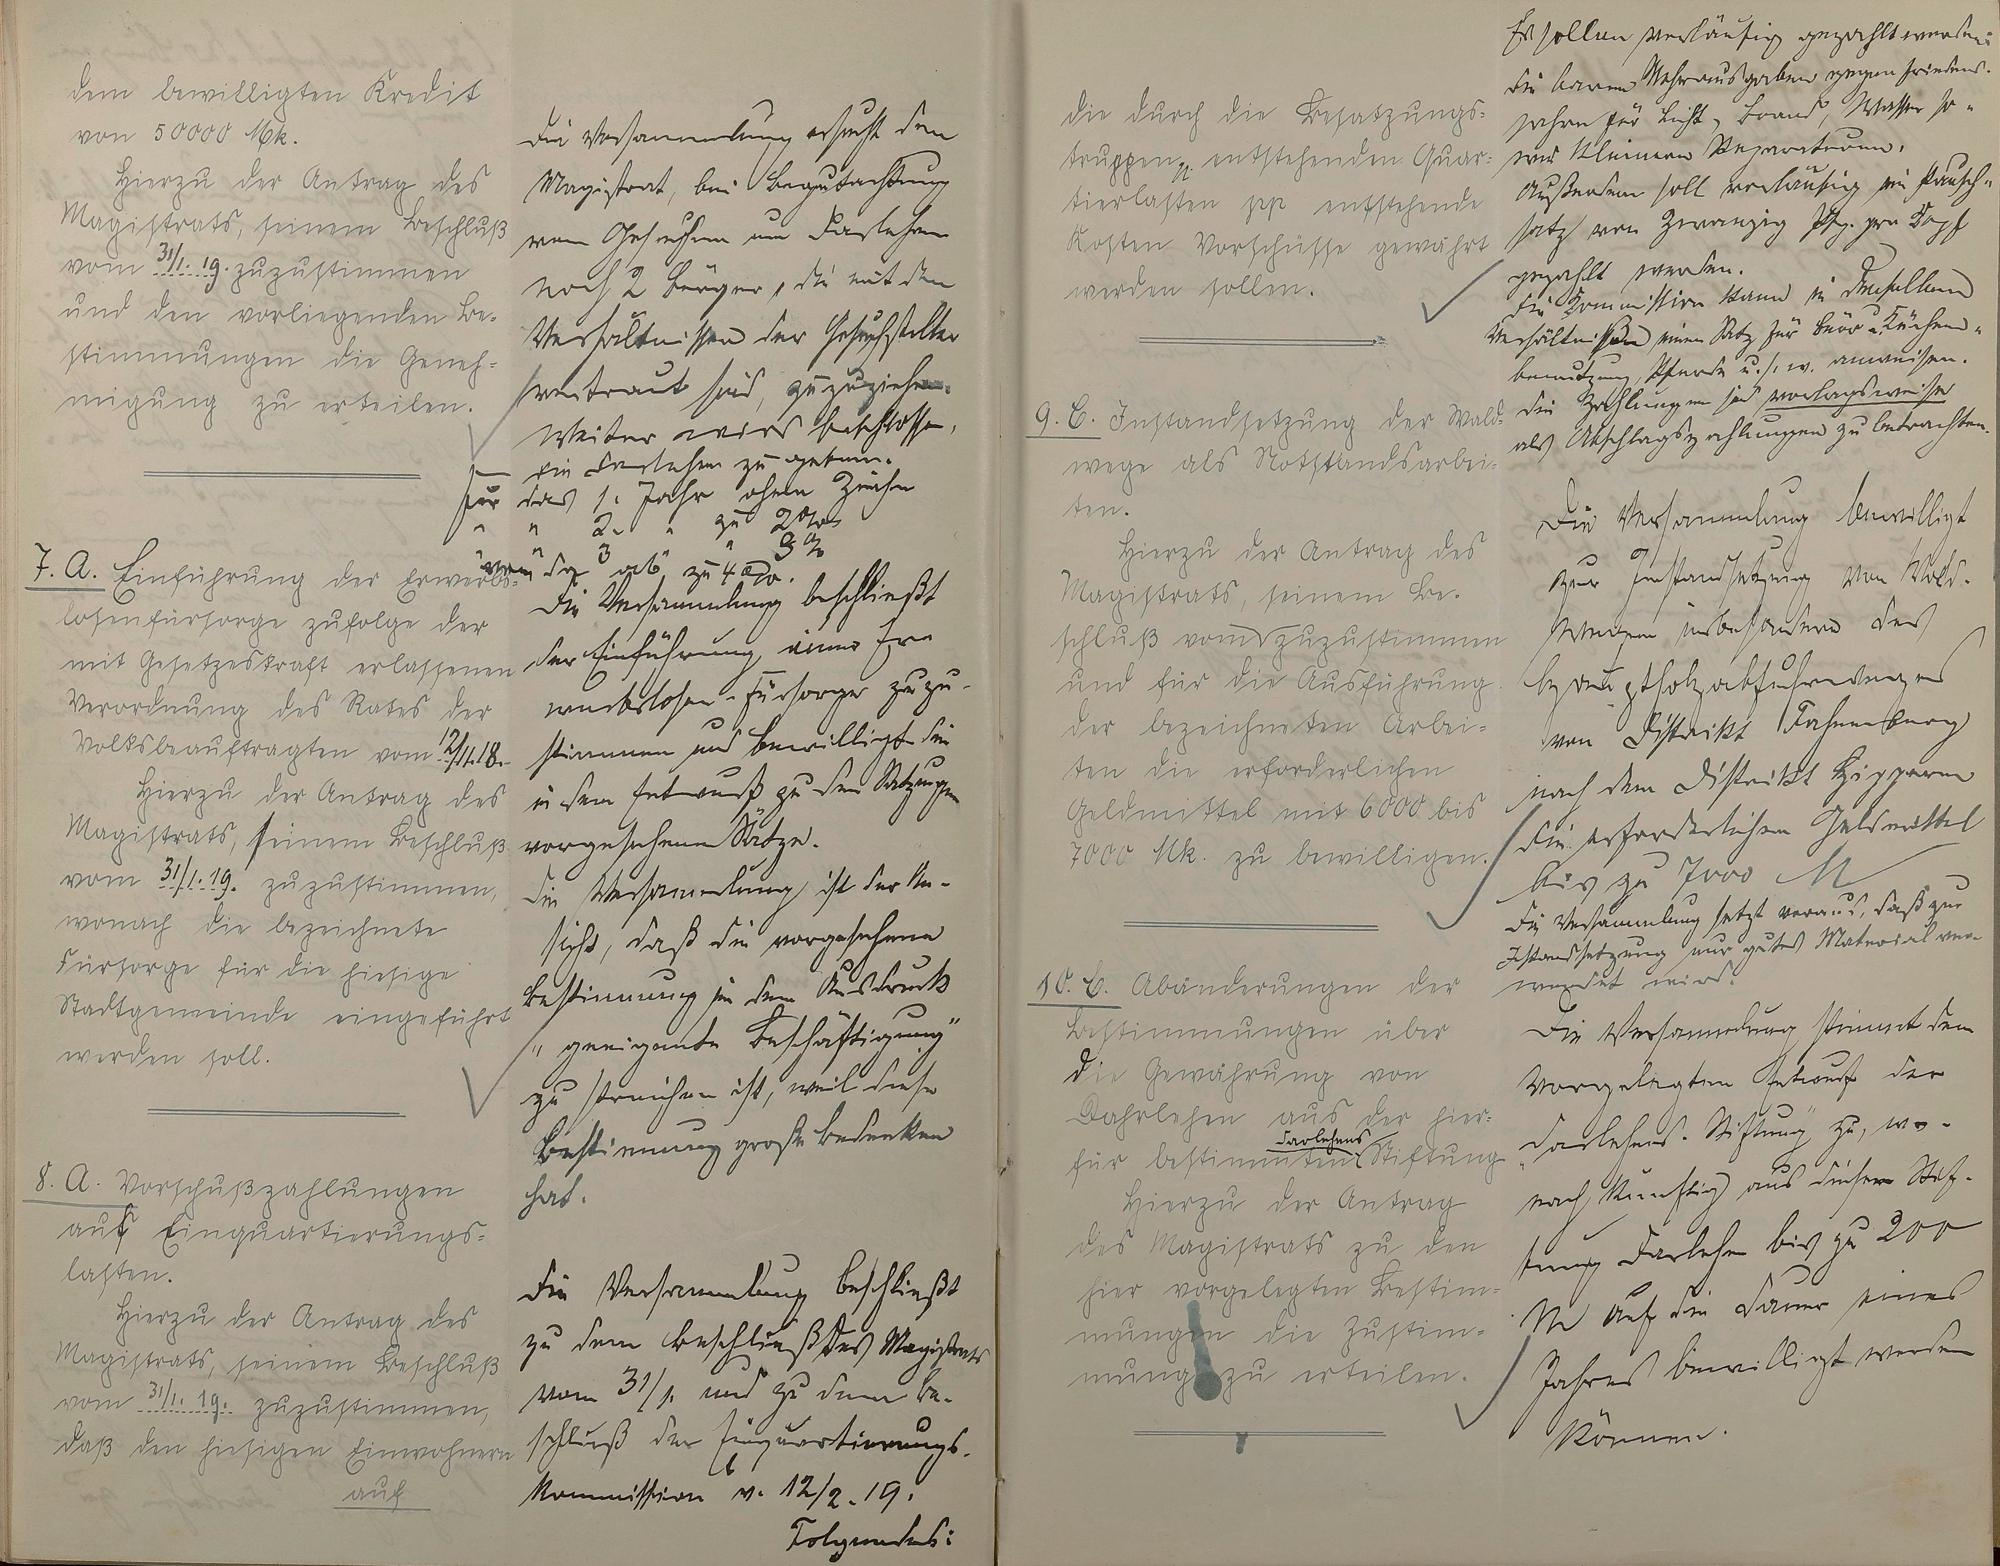 dem bewilligten Kredit
von 50000 Mk.
Hierzu der Antrag des
Magistrats, seinem Beschluß
vom 31/1. 19. zuzustimmen
und den vorliegenden Be-
stimmungen die Geneh-
migung zu erteilen.
7. A. Einführung der Erwerbs-
losenfürsorge zufolge der
mit Gesetzeskraft erlassenen
Verordnung des Rates der
Volksbeauftragten vom 12/11.18.
Hierzu der Antrag des
Magistrats, seinem Beschluß
vom 31/1. 19. zuzustimmen,
wonach die bezeichnete
Fürsorge für die hiesige
Stadtgemeinde eingeführt
werden soll.
8. A. Vorschußzahlungen
auf Einquartierungs-
lasten.
Hierzu der Antrag des
Magistrats, seinem Beschluß
vom 31/1. 19. zuzustimmen,
daß den hiesigen Einwohnern
auf
Die Versammlung ersucht den
Magistrat, bei Begutachtung
von Gesuchen um Darlehen
noch 2 Bürger, die mit den
Verhältnissen der Gesuchsteller
vertraut sind, zuzuziehen.
Weiter wird beschlossen,
die Darlehen zu geben.
für das 1. Jahr ohne Zinsen
" " 2. " zu 2%
" " 3 " " 3%
von da ab zu 4%.
Die Versammlung beschließt
der Einführung einer Er-
werbslosen-Fürsorge zuzu-
stimmen und bewilligt die
in dem Entwurf zu den Satzungen
vorgesehenen Sätze.
Die Versammlung ist der An-
sicht, daß die vorgesehene
Bestimmung in dem Ausdruck
"geeignete Beschäftigung"
zu streichen ist, weil diese
Bestimmung große Bedenken
hat.
Die Versammlung beschließt
zu dem Beschluß des Magistrats
vom 31/1. und zu dem Be-
schluß der Einquartierungs-
kommission v. 12/2. 19.
Folgendes:
die durch die Besatzungs-
truppen entstehenden Quar-
tierlasten pp entstehende
Kosten Vorschüsse gewährt
werden sollen.
9. C. Instandsetzung der Wald-
wege als Notstandsarbei-
ten.
Hierzu der Antrag des
Magistrats, seinem Be-
schluß vom zuzustimmen
und für die Ausführung
der bezeichneten Arbei-
ten die erforderlichen
Geldmittel mit 6000 bis
7000 Mk. zu bewilligen.
10. C. Abänderungen der
Bestimmungen über
die Gewährung von
Dahrlehen aus der hier-
für bestimmten Darlehens Stiftung
Hierzu der Antrag
des Magistrats zu den
hier vorgelegten Bestim-
mungen die Zustim-
mung zu erteilen.
Es sollen vorläufig gezahlt werden:
die baren Mehrausgaben gegen Friedens-
jahre für Licht, Brand, Wasser so-
wie kleinere Reparaturen.
Außerdem soll vorläufig ein Pausch-
satz von Zwanzig Pfg. pro Kopf
gezahlt werden.
Die Kommission kann in denselben
Verhältnissen einen Satz für Büro u. Küchen-
benutzung, Pferde u.s.w. anweisen.
Die Zahlungen sind vorlagsweise
als Abschlagszahlungen zu betrachten.
Die Versammlung bewilligt
zur Instandsetzung von Wald-
wegen insbesondere des
Hauptholzabfuhrweges
vom Distrikt Fahrenberg
nach dem Distrikt
die erforderlichen Geldmittel
bis zu 7000 M
Die Versammlung setzt voraus, daß zur
Istandsetzung nur gutes Material ver-
wendet wird.
Die Versammlung stimmt dem
vorgelegten Entwurf der
"Darlehens-Stiftung" zu, wo-
nach künftig aus dieser Stif-
tung Darlehen bis zu 200
M auf die Dauer eines
Jahres bewilligt werden
können.